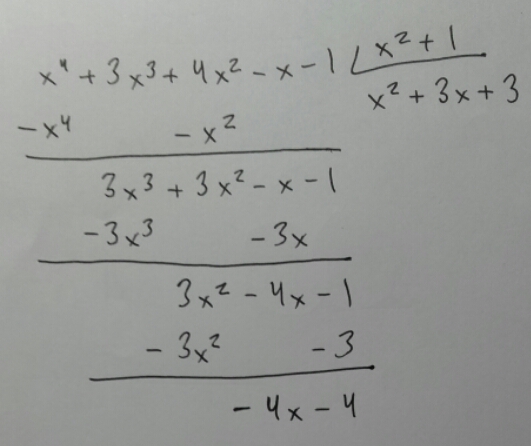 x⁴ + 3x³ + 4x² - x - 1 ⟌ x² + 1
x² + 3x + 3
- x⁴ - x²
3x³ + 3x² - x - 1
- 3x³ - 3x
3x² - 4x - 1
- 3x² - 3
- 4x - 4